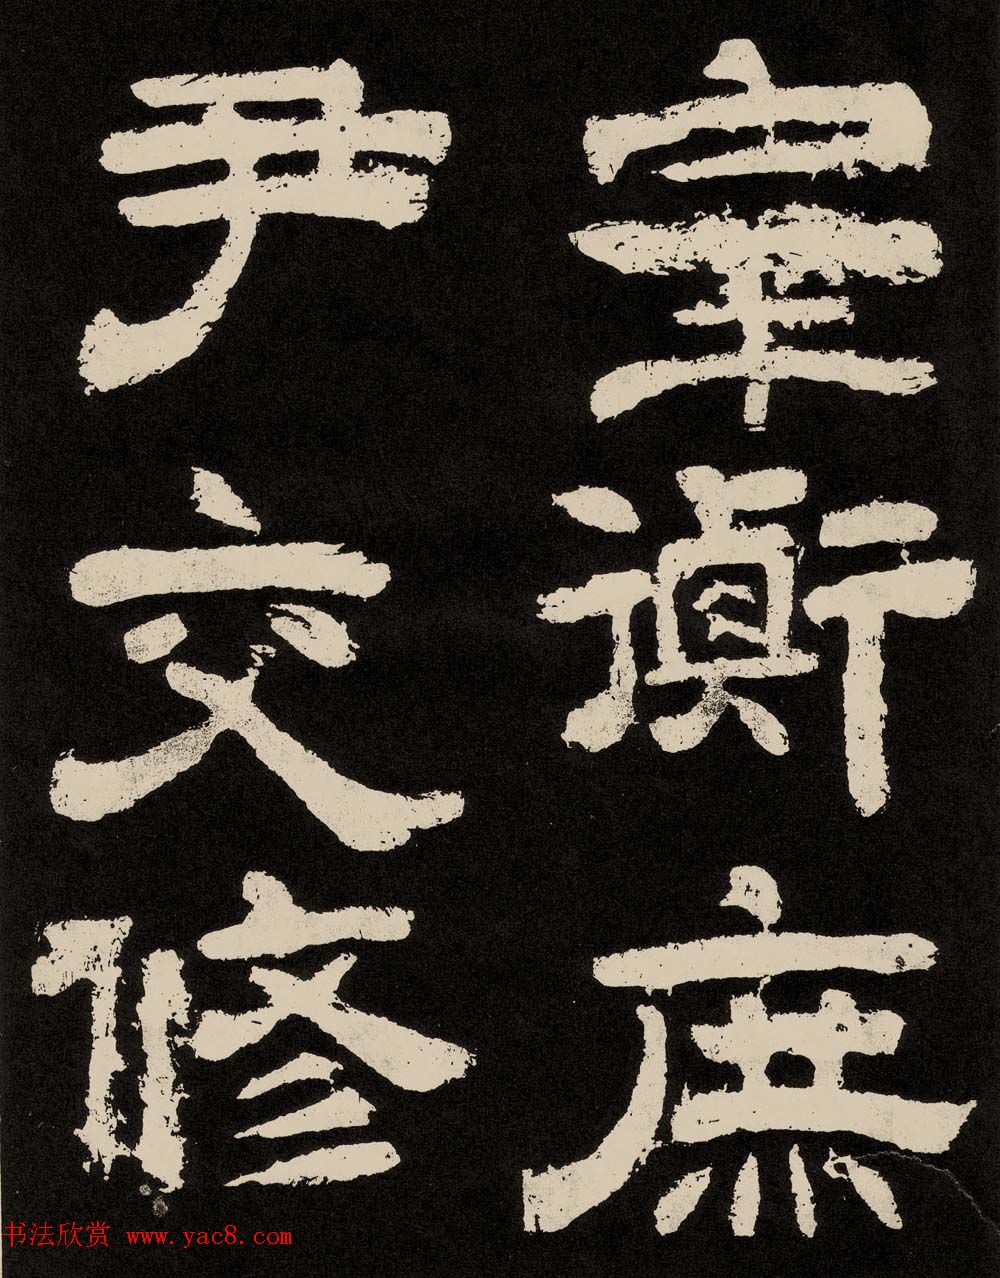 宰衡庶
尹交修
书法欣赏 www.yac8.com